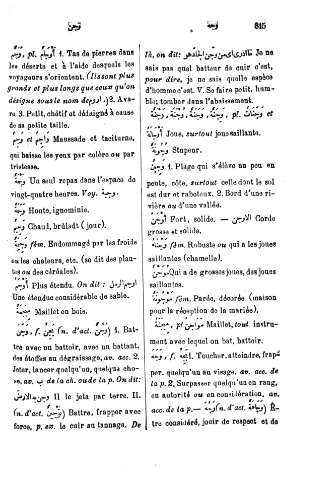 وَجَنَ
وَجْهٌ
845
وَجَمٌ, pl. أَوْجَامٌ 1. Tas de pierres dans
les déserts et à l'aide desquels les
voyageurs s'orientent. (Ils sont plus
grands et plus longs que ceux qu'on
désigne sous le nom de ارم). 2. Ava-
re. 3. Petit, chétif et dédaigné à cause
de sa petite taille.
وَجِمٌ et وَاجِمٌ Maussade et taciturne,
qui baisse les yeux par colère ou par
tristesse.
Un seul repas dans l'espace de
vingt-quatre heures. Voy. وجبة.
Honte, ignominie.
Chaud, brûlant (jour).
fém. Endommagé par les froids
ou les chaleurs, etc. (se dit des plan-
tes ou des céréales).
أَوْجَمُ Plus étendu. On dit : اوجم الرمل
Une étendue considérable de sable.
Maillet en bois.
وَجَنَ, f. يَجِنُ (n. d'act. وَجْنٌ) 1. Bat-
tre avec un battoir, avec un battant,
des étoffes au dégraissage, av. acc. 2.
Jeter, lancer quelqu'un, quelque cho-
se, av. ب de la ch. ou de la p. On dit:
وجن به الارض Il le jeta par terre. II.
(n. d'act. تَوْجِينٌ) Battre, frapper avec
force, p. ex. le cuir au tannage. De
là, on dit: Je ne
sais pas quel batteur de cuir c'est,
pour dire, je ne sais quelle espèce
d'homme c'est. V. Se faire petit, hum-
ble, tomber dans l'abaissement.
pl. وجنات et
Joue, surtout joue saillante.
Stupeur.
وَجِينٌ 1. Plage qui s'élève un peu en
pente, côte, surtout celle dont le sol
est dur et raboteux. 2. Bord d'une ri-
vière ou d'une vallée.
Fort, solide. — الاوجن Corde
grosse et solide.
وَجْنَاءُ fém. Robuste ou qui a les joues
saillantes (chamelle).
Qui a de grosses joues, des joues
saillantes.
fém. Parée, décorée (maison
pour la réception de la mariée).
مِيجَنَةٌ, pl. مواجن Maillet, tout instru-
ment avec lequel on bat, battoir.
وَجَهَ, f. يَجِهُ 1. Toucher, atteindre, frap-
per quelqu'un au visage, av. acc. de
la p. 2. Surpasser quelqu'un en rang,
en autorité ou en considération, av.
acc. de la p. — وَجُهَ (n. d'act. وَجَاهَةٌ) Ê-
tre considéré, jouir de respect et de